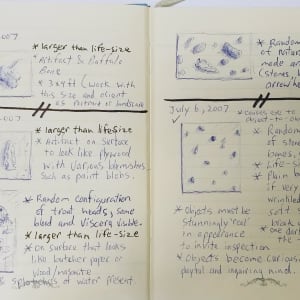 2007
* larger than life-size
* Artifact & Buffalo
Bone
* 3x4 ft (work with
this size and orient
as portrait or landscape
2007
* larger than lifesize
* Artifact on Surface
to look like plywood
with various blemishes
such as paint blobs.
* Random configuration
of trout heads, some
blood and viscera visible.
* larger than life-size
* on surface that looks
like butcher paper or
wood/masonite
* splotches of water present.
* Random
of natural
made
(stones,
arrowhe
July 6, 2007
✓
* Random
of stone
bones,
* Life-si
* Plain b
if very
wrinkled
* Objects must be
stunningly "real"
in appearance
to invite inspection
* Objects become curiosi
playful and inquiring mind.